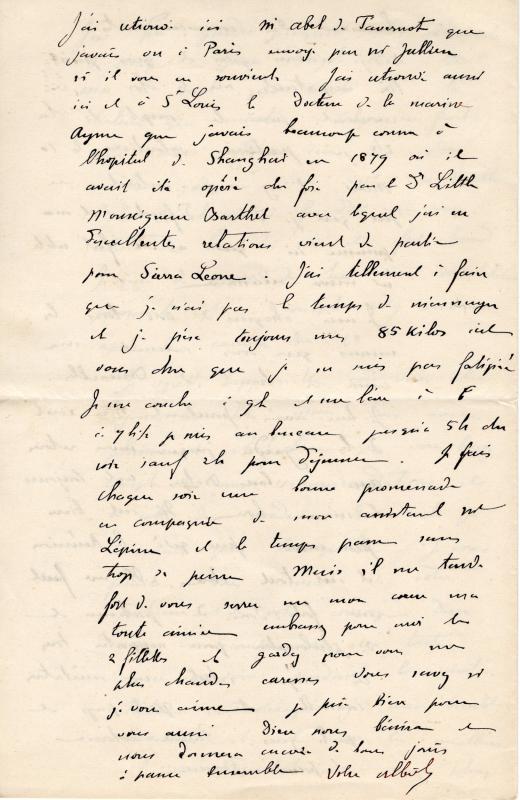 J'ai retrouvé ici Mr abel de Tavernot que
j'avais vu à Paris envoyé par Mr Jullien
s'il vous en souvient J'ai retrouvé aussi
ici et à St Louis le Docteur de la marine
Ayme que j'avais beaucoup connu à
l'hopital de Shanghai en 1879 où il
avait été opéré du foie par le Dr Little
Monseigneur Barthet avec lequel j'ai eu
d'excellentes relations vient de partir
pour Sierra Leone. J'ai tellement à faire
que je n'ai pas le temps de m'ennuyer
et je pèse toujours mes 85 Kilos c'est
vous dire que je ne suis pas fatigué
Je me couche à 9h et me lève à 6
à 7h1/2 je suis au bureau jusqu'à 5h du
soir sauf 2h pour déjeuner. Je fais
chaque soir une bonne promenade
en compagnie de mon assistant Mr
Lépine et le temps passe sans
trop de peine Mais il me tarde
fort de vous serrer sur mon coeur ma
toute aimée embrassez pour moi les
2 fillettes et gardez pour vous mes
plus chaudes caresses vous savez si
je vous aime je prie bien pour
vous aussi Dieu nous bénira et
nous donnera encore de bons jours
à passer ensemble Votre Albert